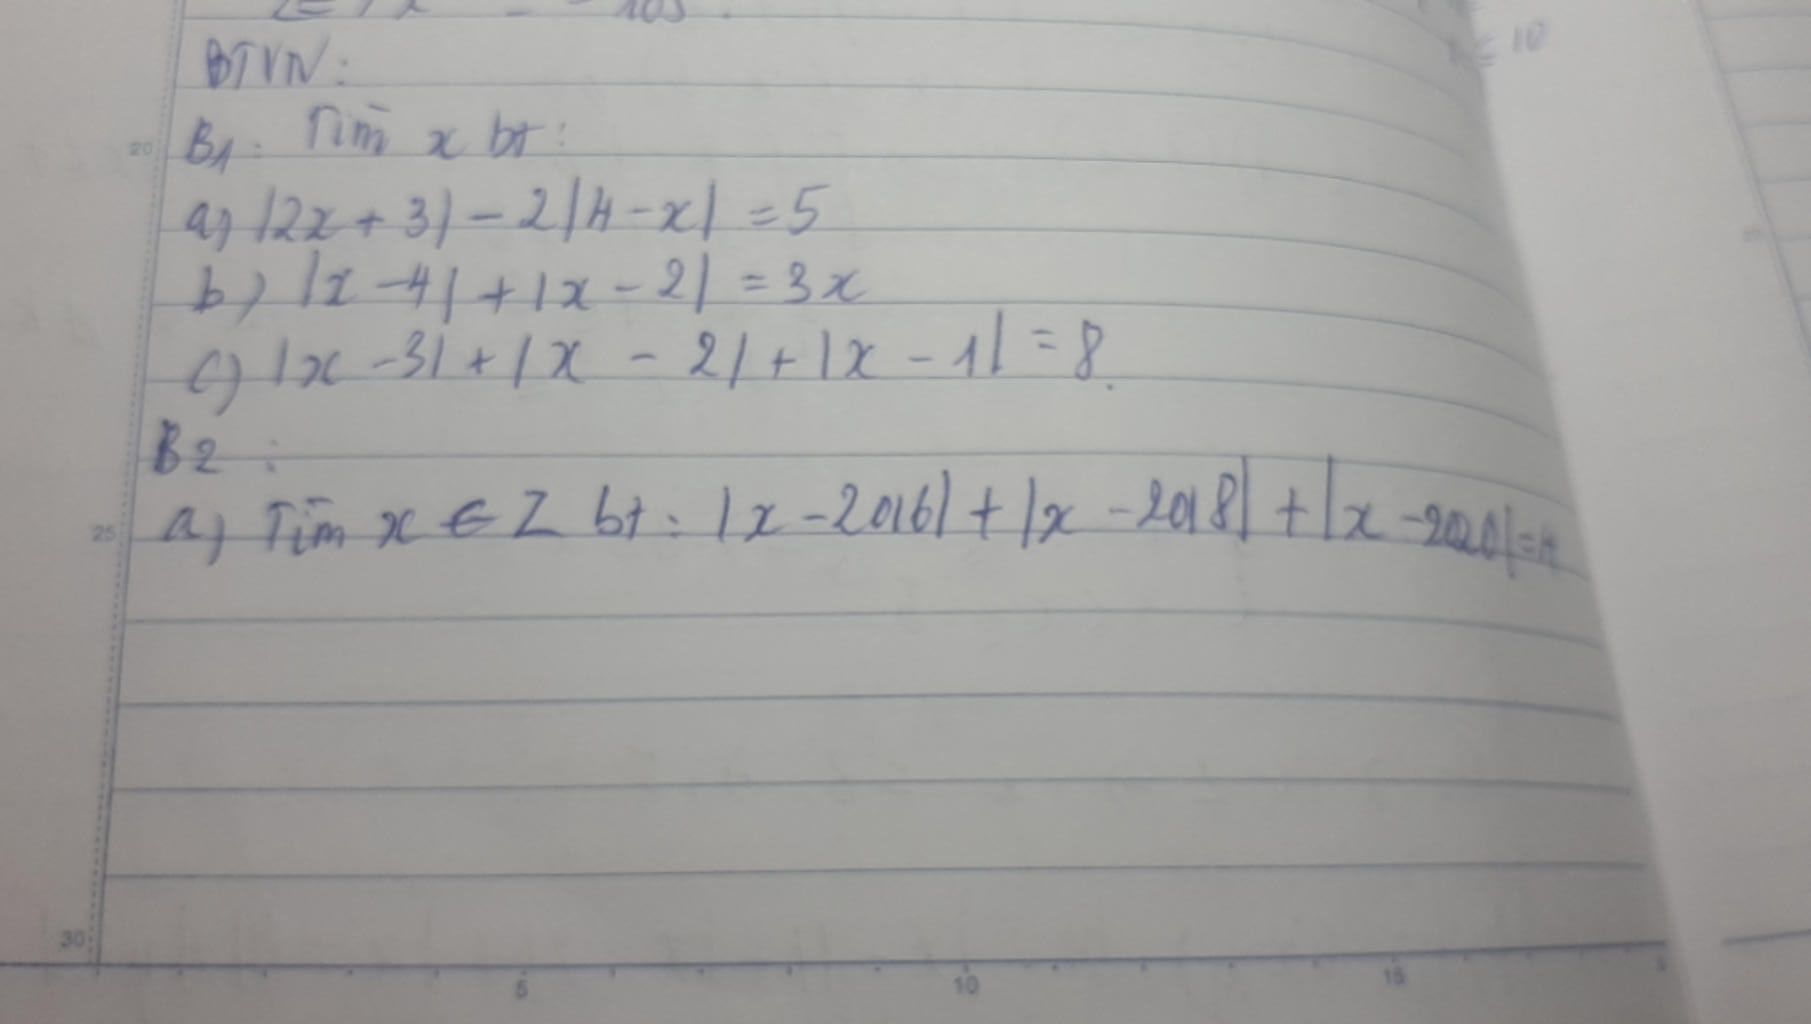 BTVN:
B1: Tìm x bt:
a) |2x + 3| - 2|4 - x| = 5
b) |x - 4| + |x - 2| = 3x
c) |x - 3| + |x - 2| + |x - 1| = 8.
B2:
a) Tìm x ∈ Z bt: |x - 2016| + |x - 2018| + |x - 2020| = 4
≤ 10
20
25
30
5
10
15